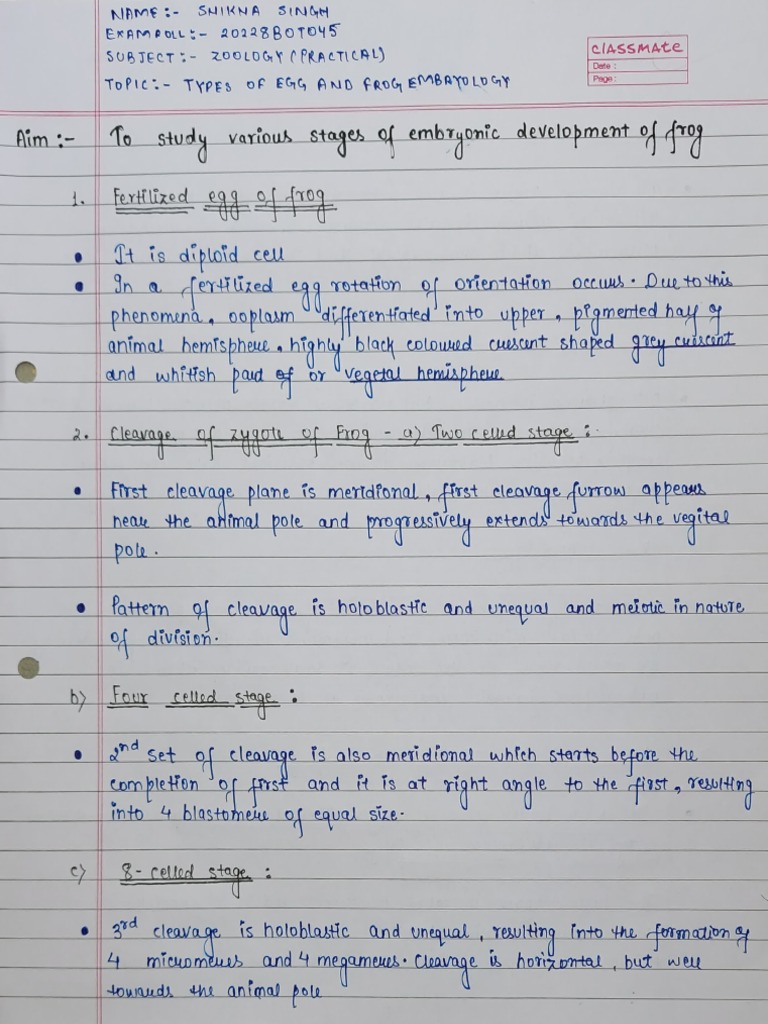 NAME:- SNIKNA SINGH
EXAM ROLL:- 20228BOT045
SUBJECT:- ZOOLOGY (PRACTICAL)
TOPIC:- TYPES OF EGG AND FROG EMBAYOLOGY
CLASSMATE
Date :
Page :
Aim :- To study various stages of embryonic development of frog
1. Fertilized egg of frog
• It is diploid cell
• In a fertilized egg rotation of orientation occurs. Due to this
phenomena, ooplasm differentiated into upper, pigmented half of
animal hemisphere, highly black coloured crescent shaped grey crescent
and whitish part of or vegetal hemisphere
2. Cleavage of zygote of Frog - a) Two celled stage :
• First cleavage plane is meridional, first cleavage furrow appears
near the animal pole and progressively extends towards the vegital
pole.
• Pattern of cleavage is holoblastic and unequal and meiotic in nature
of division.
b) Four celled stage :
• 2nd set of cleavage is also meridional which starts before the
completion of first and it is at right angle to the first, resulting
into 4 blastomere of equal size.
c) 8-celled stage :
• 3rd cleavage is holoblastic and unequal, resulting into the formation of
4 micromeres and 4 megameres. Cleavage is horizontal, but well
towards the animal pole